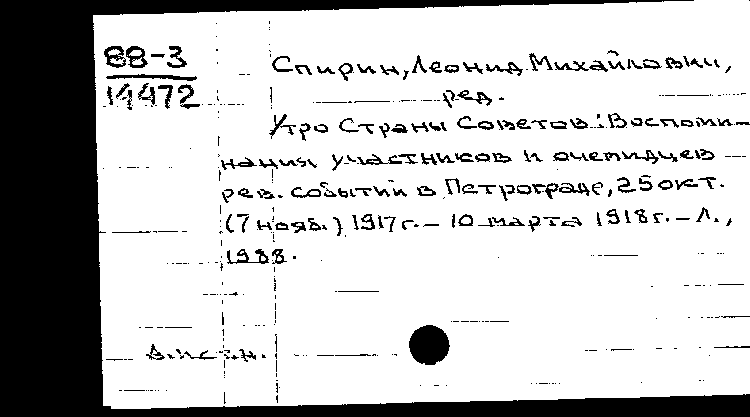 88-3
14472
Спирин, Леонид Михайлович,
ред.
Утро Страны Советов: Воспоми-
нания участников и очевидцев
рев. событий в Петрограде, 25 окт.
(7 нояб.) 1917 г. - 10 марта 1918 г. - Л.,
1988.